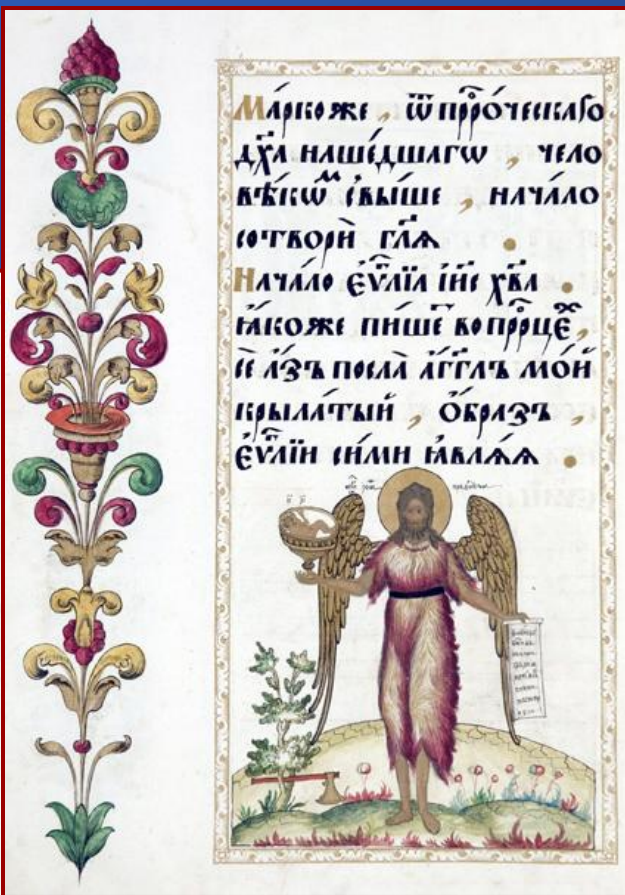 Ма́рко же , ѿ прⷪ҇ро́ческагѡ
дх҃а наше́дшагѡ , чело
вѣ́кѡⷨ свы́ше , нача́ло
сотворѝ гл҃я .
Нача́ло є҆ѵⷢ҇лїа і҆и҃с хв҃а .
ꙗ҆́коже пи́шеⷮ в прⷪ҇ро́цеⷯ ,
сѐ а҆́зъ посла̀ а҆́гг҃лъ мо́й
крыла́тый , ѻ҆́бразъ ,
є҆ѵⷢ҇лїи си́ми ꙗ҆вла́ѧ .